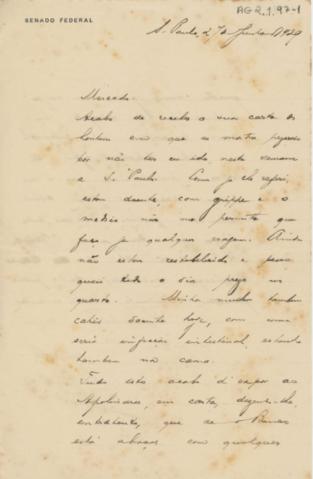 SENADO FEDERAL
AG 2.1.97-1
S. Paulo, 2 de Junho 1929
Macedo
Acabo de receber a sua carta de
hontem em que se mostra pezaroso
por não ter eu ido nesta semana
a S. Paulo. Como já lhe referi,
estou doente, com grippe e o
medico não me permitte que
faça já qualquer viagem. Ainda
não estou restabelecido e passo
quasi todo o dia preso no
quarto. Minha mulher tambem
cahiu doente hoje, com uma
seria infecção intestinal, estando
tambem na cama.
Tudo isto acabo de expor ao
Apolinario, em carta, dizendo-lhe,
entretanto, que se o
está a braços com qualquer